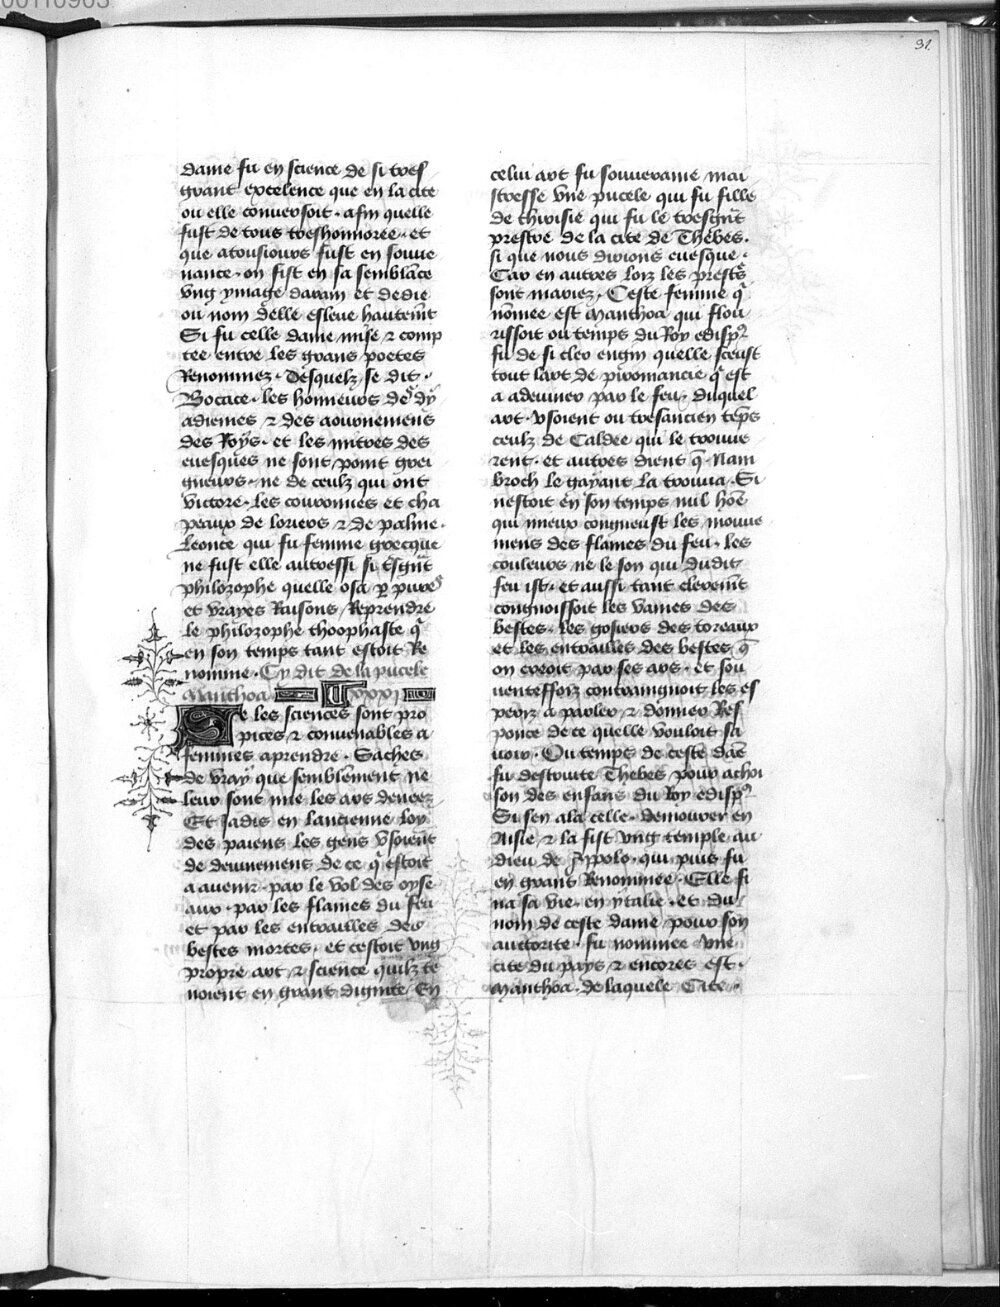 00110903
31.
dame fu en science de si tres
grant excelence que en la cite
ou elle conversoit. afin quelle
fust de tous treshonnoree. et
que atousiours fust en souve
nance. on fist en sa semblāce
vng ymage darain et dedie
ou nom delle esleue hautemt
Si fu celle dame mise ⁊ comp
tee entre les grans poetes
Renommez. Desquelz se dit.
Bocace. les honneurs de dy
adiemes ⁊ des aournemens
des Roys. et les mitres des
euesques ne sont point grei
gneurs. ne de ceulz qui ont
victore. les couronnes et cha
peaux de loriers ⁊ de palme.
Leonce qui fu femme grecque
ne fust elle autressi si tsgnt
philozophe quelle osa p pures
et vrayes Raisons Reprendre
le philozophe thoophaste q
en son temps tant estoit Re
nomme. Cy dit de la pucele
Manthoa xxxi
Se les sciences sont pro
pices ⁊ convenables a
femmes aprendre. Saches
de vray que semblement ne
leur sont mie les ars deueez
Et Jadis en lancienne loy
des paiens les gens vsoient
de deuinement de ce q estoit
a auenir. par le vol des oyse
aux. par les flames du feu
et par les entrailles des
bestes mortes. et cestoit vng
propre art ⁊ science quilz te
noient en grant dignite. En
celui art fu souueraine mai
stresse vne pucele qui fu fille
de thirisie qui fu le tresgnt
prestre de la cite de Thebes.
si que nous dirions euesque.
Car en autres loiz les prests
sont mariez. Ceste femme q
nōmee est Manthoa qui flou
rissoit ou temps du Roy edisp
fu de si cler engin quelle sceust
tout lart de piromancie q est
a adeuiner par le feu. duquel
art. vsoient ou tresancien tēps
ceulz de Caldee qui le trouue
rent. et autres dient q̄ Nam
broch le gayant la trouua. Si
nestoit en son temps nul hōe
qui mieux congneust les mouue
mens des flames du feu. les
couleurs ne le son qui dudit
feu ist. et aussi tant cleremt
congnoissoit les vaines des
bestes. les gosiers des toreaux
et les entrailles des bestes q̄
on creoit par ses ars. et sou
uenteffoiz contraingnoit les es
periz a parler ⁊ donner Res
ponce de ce quelle vouloit sa
uoir. Ou temps de ceste dāe
fu destruite Thebes pour achoi
son des enfans du Roy edisp
Si sen ala celle. demourer en
Aisie ⁊ la fist vng temple au
dieu de Appolo. qui puis fu
en grant Renommee. Elle fi
na sa vie. en ytalie. et du
nom de ceste dame pour son
auctorite. fu nommee vne
cite du pays ⁊ encores est.
Manthoa. de laquele Cite.